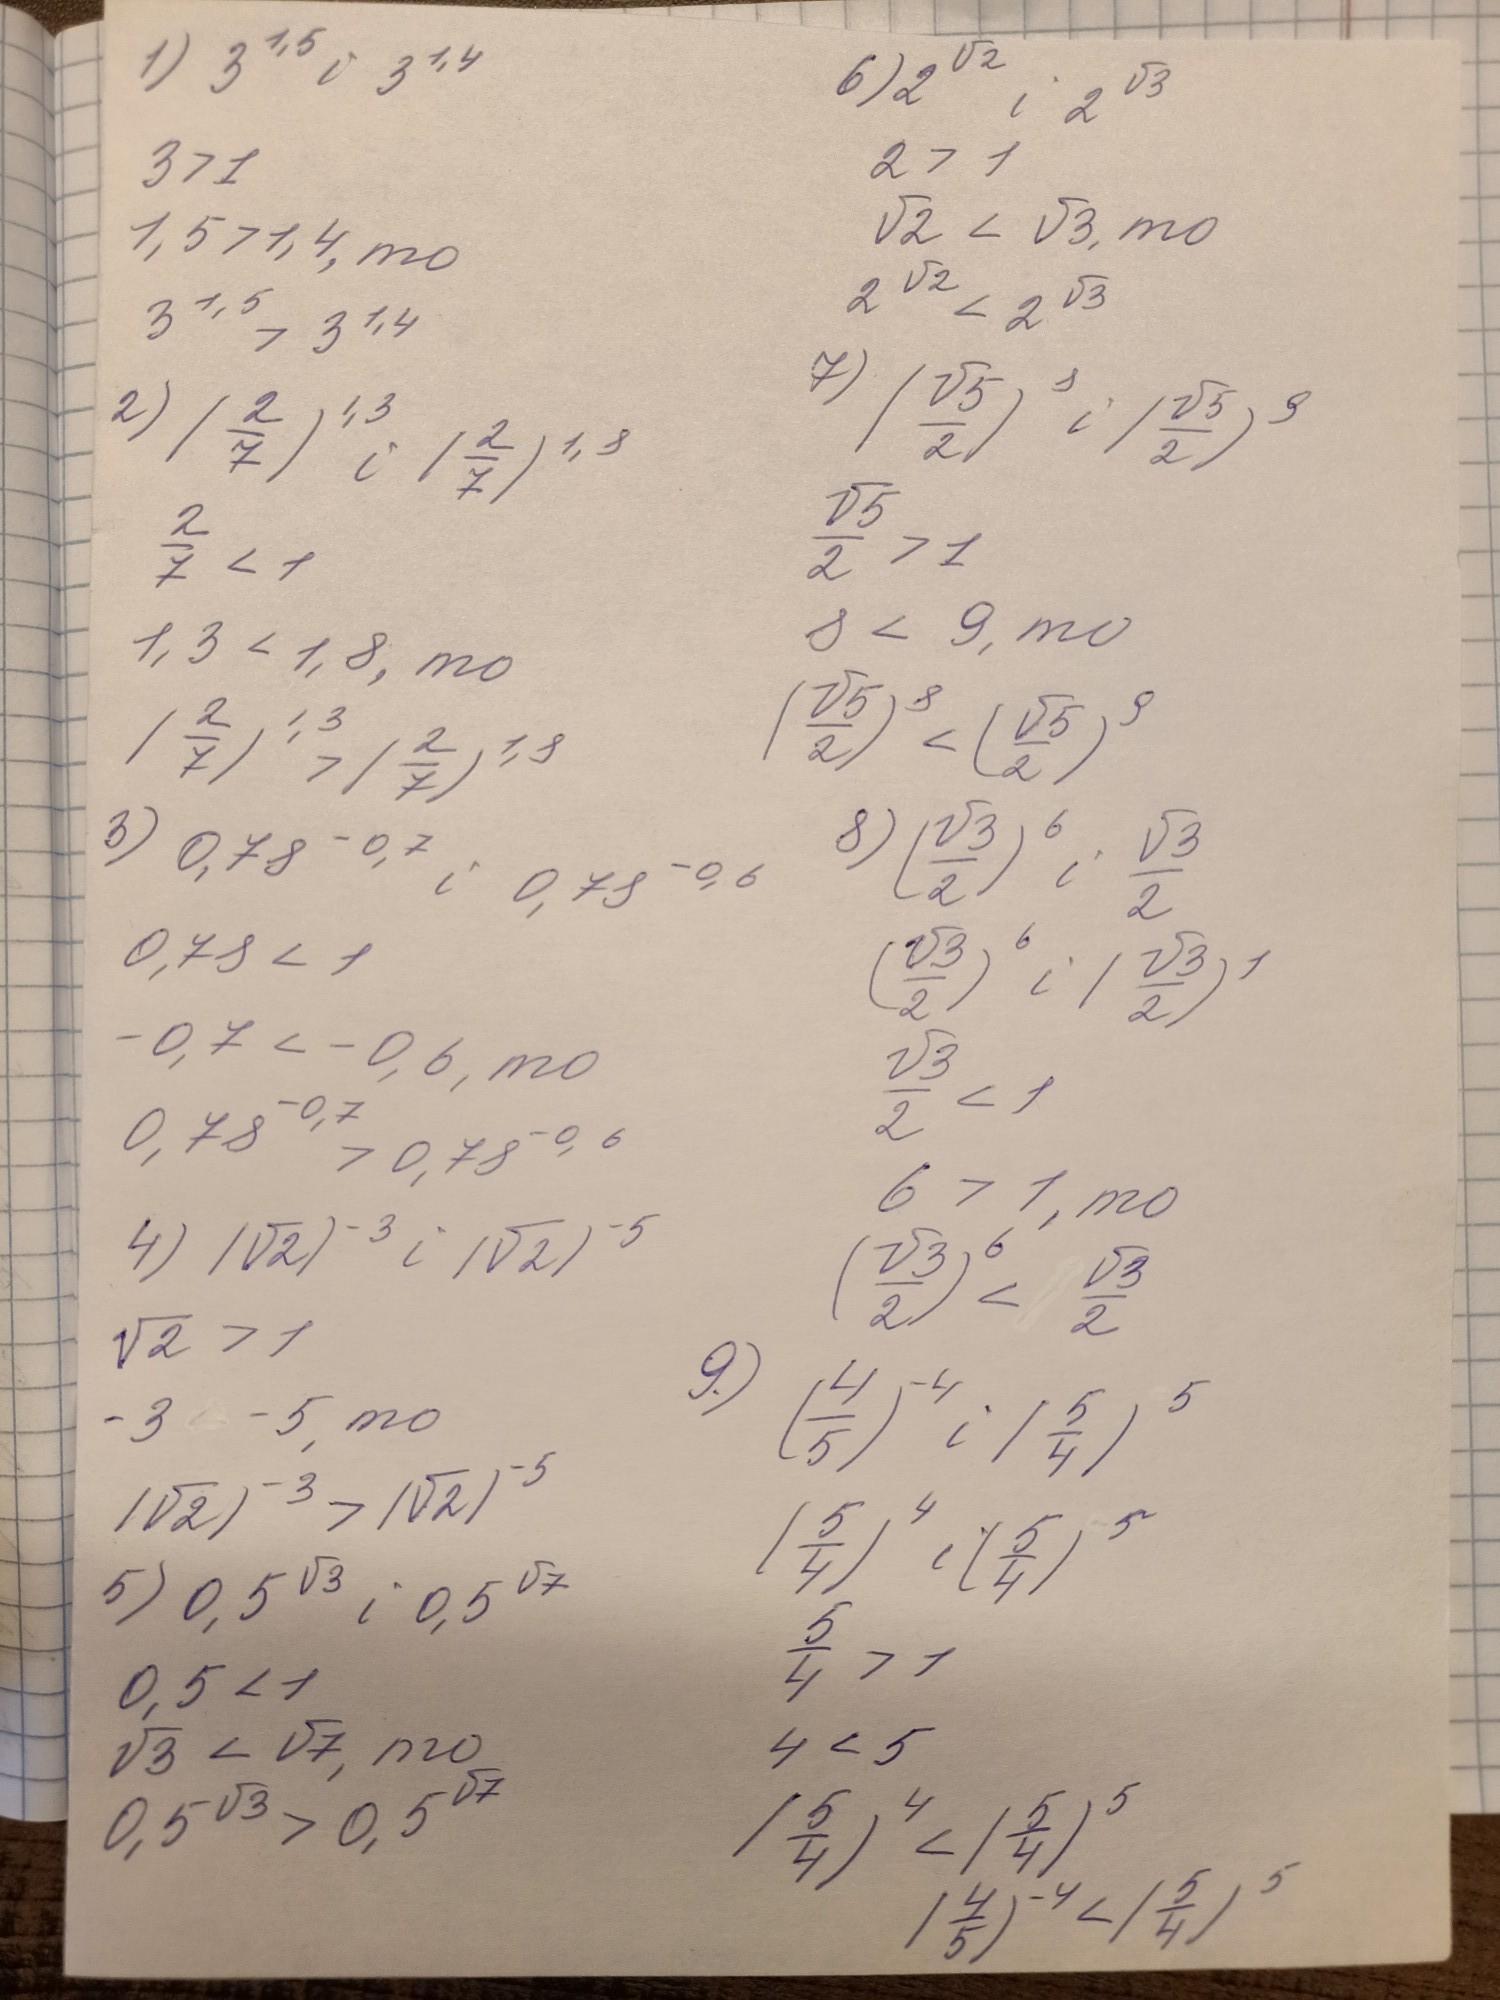 1) 3^1,5 і 3^1,4
3 > 1
1,5 > 1,4, то
3^1,5 > 3^1,4
2) (2/7)^1,3 і (2/7)^1,8
2/7 < 1
1,3 < 1,8, то
(2/7)^1,3 > (2/7)^1,8
3) 0,78^-0,7 і 0,78^-0,6
0,78 < 1
-0,7 < -0,6, то
0,78^-0,7 > 0,78^-0,6
4) (√2)^-3 і (√2)^-5
√2 > 1
-3 -5, то
(√2)^-3 > (√2)^-5
5) 0,5^√3 і 0,5^√7
0,5 < 1
√3 < √7, то
0,5^√3 > 0,5^√7
6) 2^√2 і 2^√3
2 > 1
√2 < √3, то
2^√2 < 2^√3
7) (√5/2)^8 і (√5/2)^9
√5/2 > 1
8 < 9, то
(√5/2)^8 < (√5/2)^9
8) (√3/2)^6 і √3/2
(√3/2)^6 і (√3/2)^1
√3/2 < 1
6 > 1, то
(√3/2)^6 < √3/2
9.) (4/5)^-4 і (5/4)^5
(5/4)^4 і (5/4)^5
5/4 > 1
4 < 5
(5/4)^4 < (5/4)^5
(4/5)^-4 < (5/4)^5